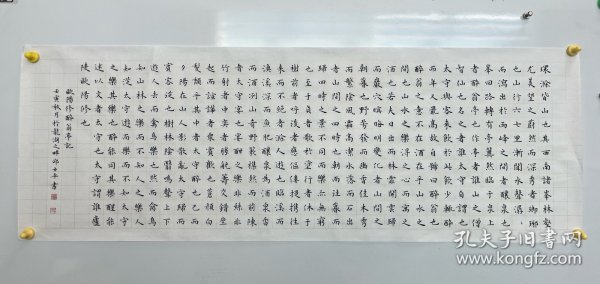 環滁皆山也其西南諸峯林壑
尤美望之蔚然而深秀者瑯琊
也山行六七里漸聞水聲潺潺
而瀉出於兩峯之間者釀泉也
峯回路轉有亭翼然臨于泉上
者醉翁亭也作亭者誰山之僧
智仙也名之者誰太守自謂也
太守與客來飲於此飲少輒醉
而年又最高故自號曰醉翁也
醉翁之意不在酒在乎山水之
間也山水之樂得之心而寓之
酒也若夫日出而林霏開雲歸
而巖穴暝晦明變化者山間之
朝暮也野芳發而幽香佳木秀
而繁陰風霜高潔水落而石出
者山間之四時也朝而往暮而
歸四時之景不同而樂亦無窮
也至於負者歌於塗行者休于
樹前者呼後者應傴僂提攜往
來而不絕者滁人遊也臨溪而
漁溪深而魚肥釀泉為酒泉香
而酒洌山肴野蔌雜然而前陳
者太守宴也宴酣之樂非絲非
竹射者中弈者勝觥籌交錯坐
起而諠譁者衆賓歡也蒼顏白
髮頹乎其中者太守醉也已而
夕陽在山人影散亂太守歸而
賓客從也樹林陰翳鳴聲上下
遊人去而禽鳥樂也然而禽鳥
知山林之樂而不知人之樂人
知從太守遊而樂而不知太守
之樂其樂也醉能同其樂醒能
述以文者太守也太守謂誰廬
陵歐陽修也
歐陽修醉翁亭記
壬寅秋月於龍湖之畔邱士年書
孔夫子旧书网
www.kongfz.com